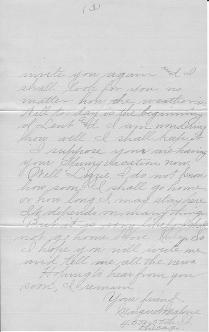 (3)
invite you again and I
shall look for you no
matter how the weather is.
Well to day is the beginning
of Lent and I am wondering
how well I shall keep it.
I suppose you are having
your Spring vacation now.
Well Lizzie, I do not know
how soon I shall go home
or how long I may stay here
It depends on many things.
But it is very likely
going home soon. So
I hope you will write me
and tell me all the news
Hoping to hear from you
soon, I remain
Your friend
Margaret
Chicago